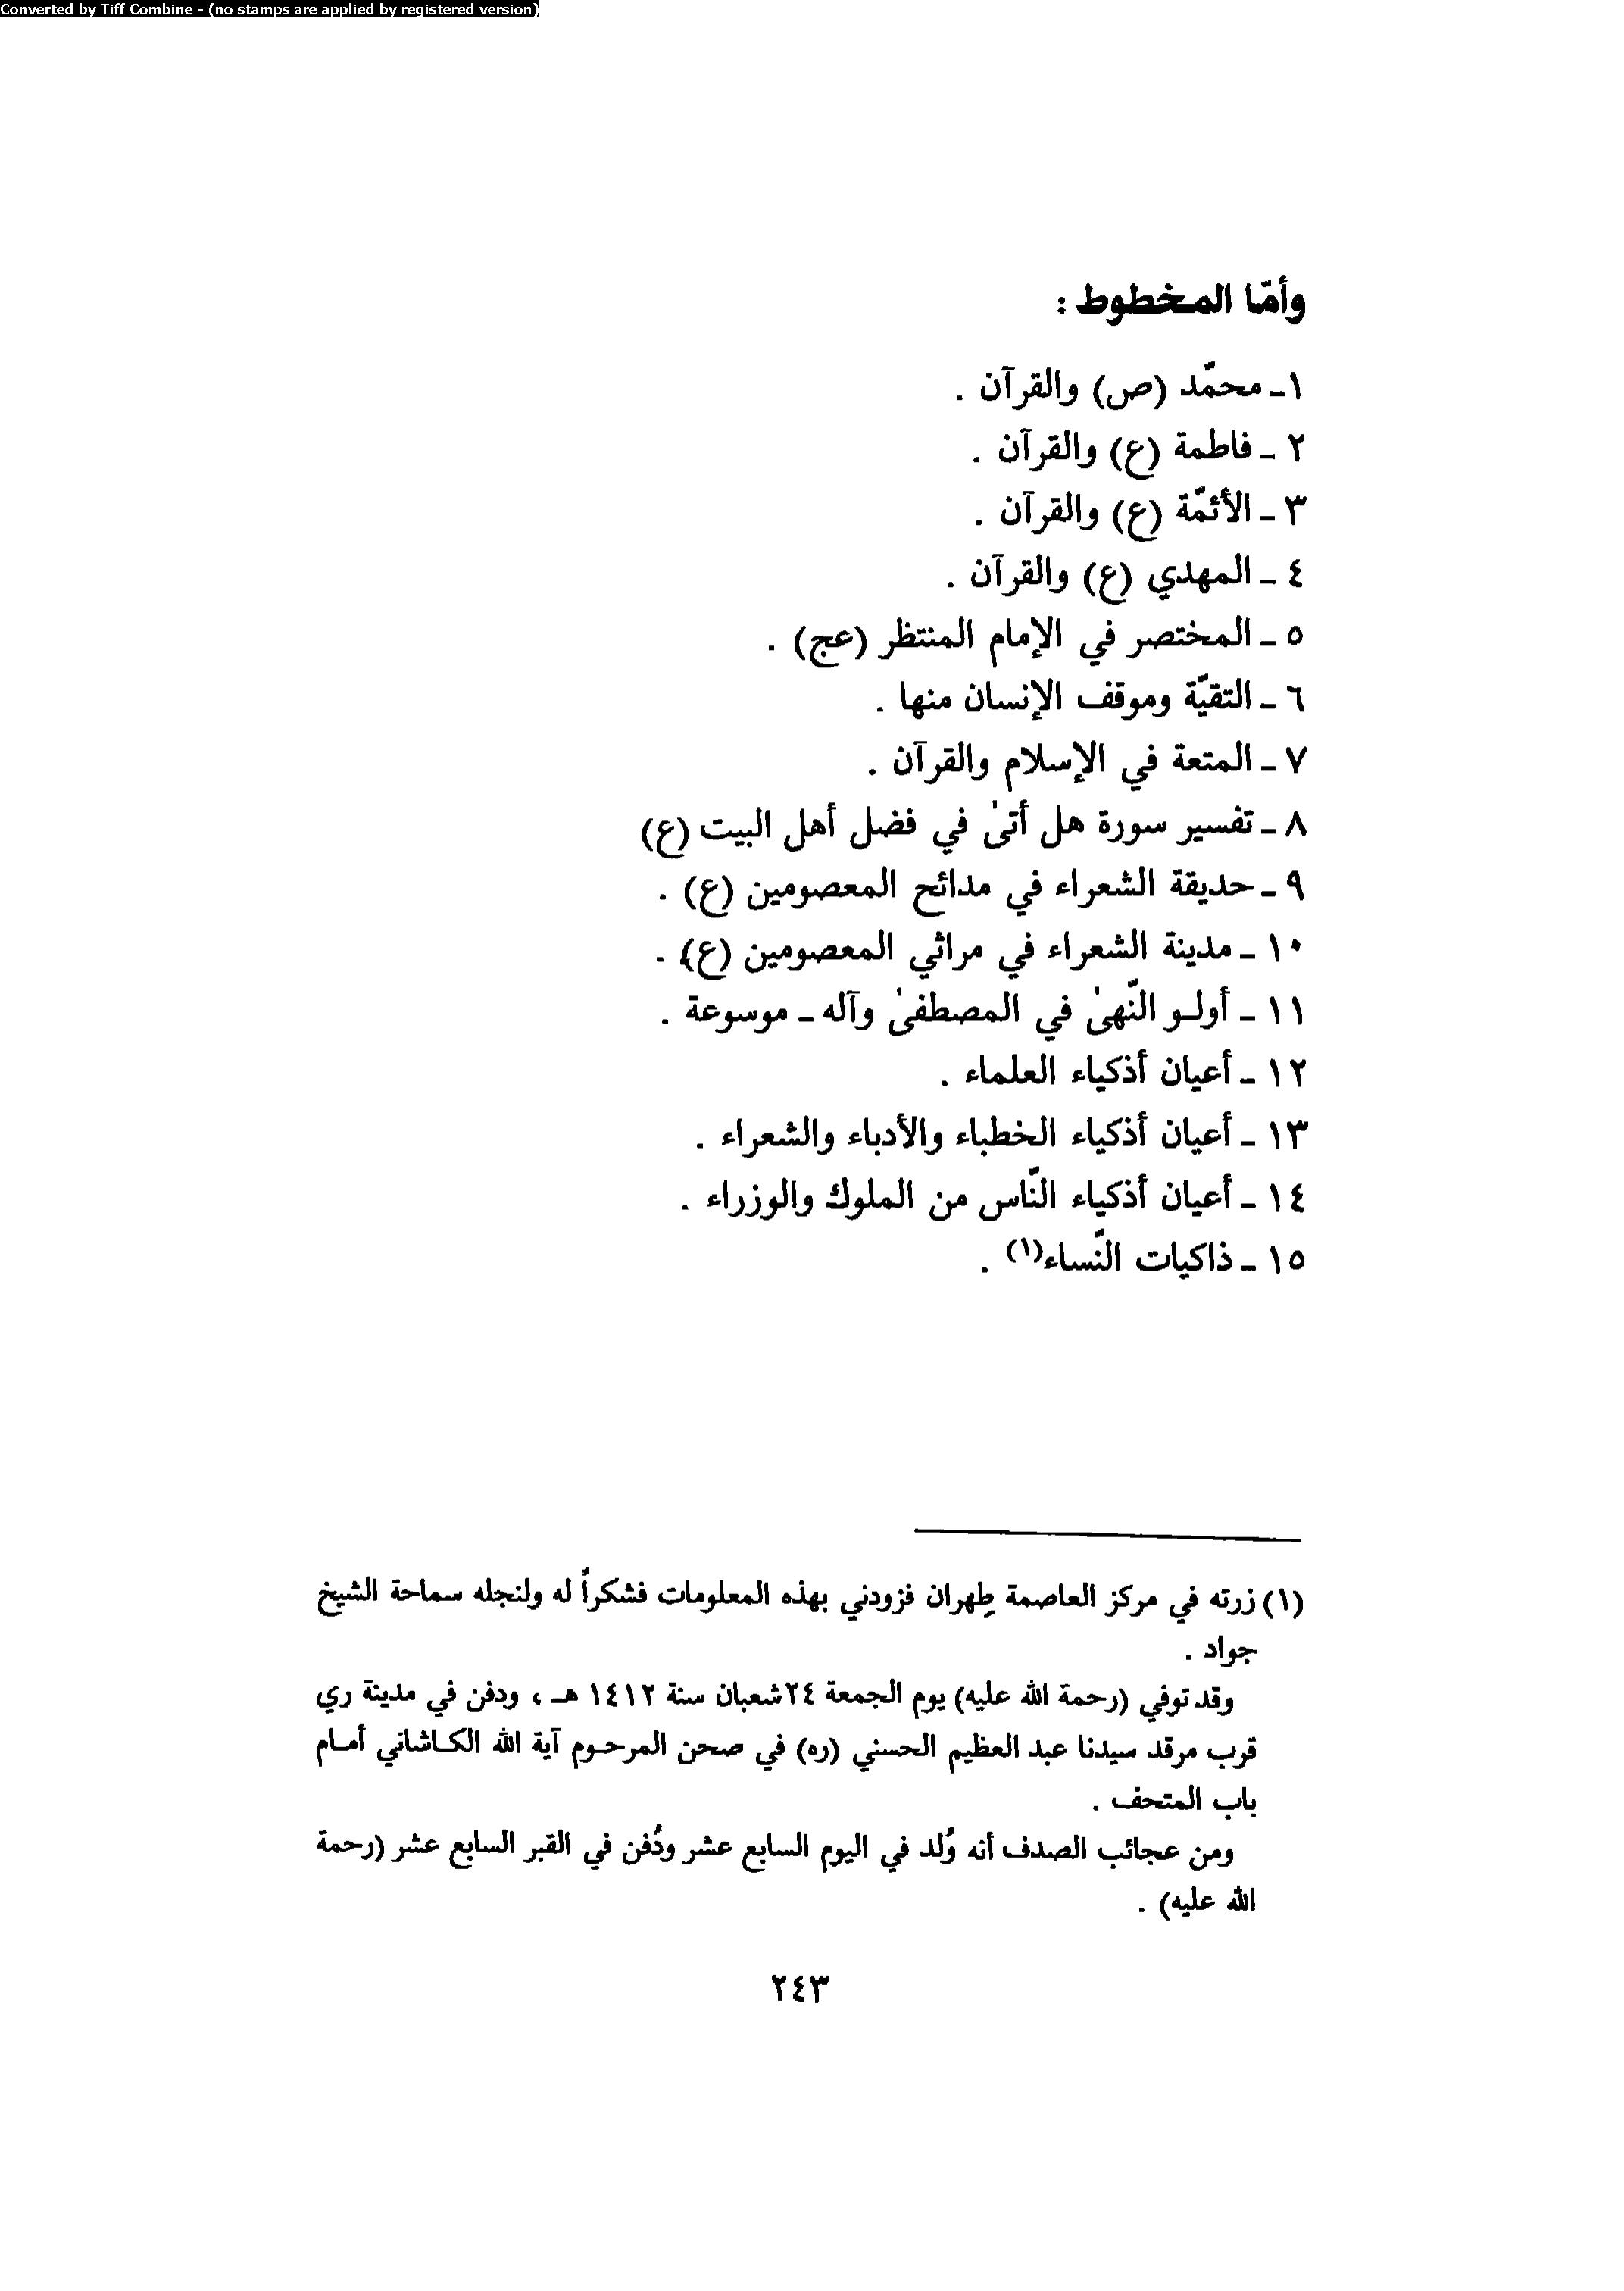 Converted by Tiff Combine - (no stamps are applied by registered version)
وأمّا المخطوط :
١ـ محمّد (ص) والقرآن .
٢ ـ فاطمة (ع) والقرآن .
٣ ـ الأئمّة (ع) والقرآن .
٤ ـ المهدي (ع) والقرآن .
٥ ـ المختصر في الإمام المنتظر (عج) .
٦ ـ التقيّة وموقف الإنسان منها .
٧ ـ المتعة في الإسلام والقرآن .
٨ ـ تفسير سورة هل أتىٰ في فضل أهل البيت (ع)
٩ ـ حديقة الشعراء في مدائح المعصومين (ع) .
١٠ ـ مدينة الشعراء في مراثي المعصومين (ع) .
١١ ـ أولـو النّهىٰ في المصطفىٰ وآله ـ موسوعة .
١٢ ـ أعيان أذكياء العلماء .
١٣ ـ أعيان أذكياء الخطباء والأدباء والشعراء .
١٤ ـ أعيان أذكياء النّاس من الملوك والوزراء .
١٥ ـ ذاكيات النّساء(١) .
(١) زرته في مركز العاصمة طِهران فزودني بهذه المعلومات فشكراً له ولنجله سماحة الشيخ
جواد .
وقد توفي (رحمة الله عليه) يوم الجمعة ٢٤ شعبان سنة ١٤١٢ هـ ، ودفن في مدينة ري
قرب مرقد سيدنا عبد العظيم الحسني (ره) في صحن المرحـوم آية الله الكـاشاني أمـام
باب المتحف .
ومن عجائب الصدف أنه وُلد في اليوم السابع عشر ودُفن في القبر السابع عشر (رحمة
الله عليه) .
٢٤٣